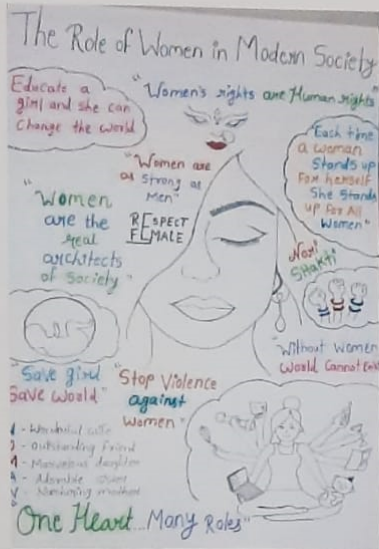 The Role of Women in Modern Society
Educate a
girl and she can
Change the world
"Women's rights are Human rights"
"Women are
as strong as
Men"
"Each time
a woman
Stands up
For herself
She Stands
up For All
Women"
"Women
are the
real
architects
of Society"
RESPECT
FEMALE
Nari
Shakti
"Without Women
World Cannot Exist
"Save girl
Save World"
"Stop Violence
against
Women"
W - Wonderful wife
O - Outstanding Friend
M - Marvelous daughter
A - Adorable sister
N - Nurturing mother
One Heart...Many Roles"